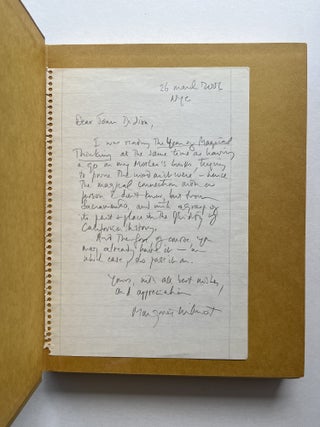 26 march 2006
NYC
Dear Joan Didion,
I was reading The Year of Magical
Thinking at the same time as having
a go at my Mother's books trying
to prune the
the magical connection with a
person I don't know, but from
Sacramento, and with a grasp of
its past & place in the
California history.
And the of course, you
may already have it – in
which case, do pass it on.
Yours, with all best wishes,
and appreciation